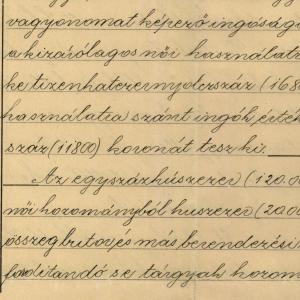 vagyonomat képező ingóság
a kizárólagos női használatr
ke tizenhatezernyolcszáz (1680
használatra szánt ingók érték
száz (11800) koronát tesz ki.
Az egyszázhúszezer (120.00
női hozományból huszezer (20.00
összeg butor és más berendezési
fordítandó s e tárgyak hozom